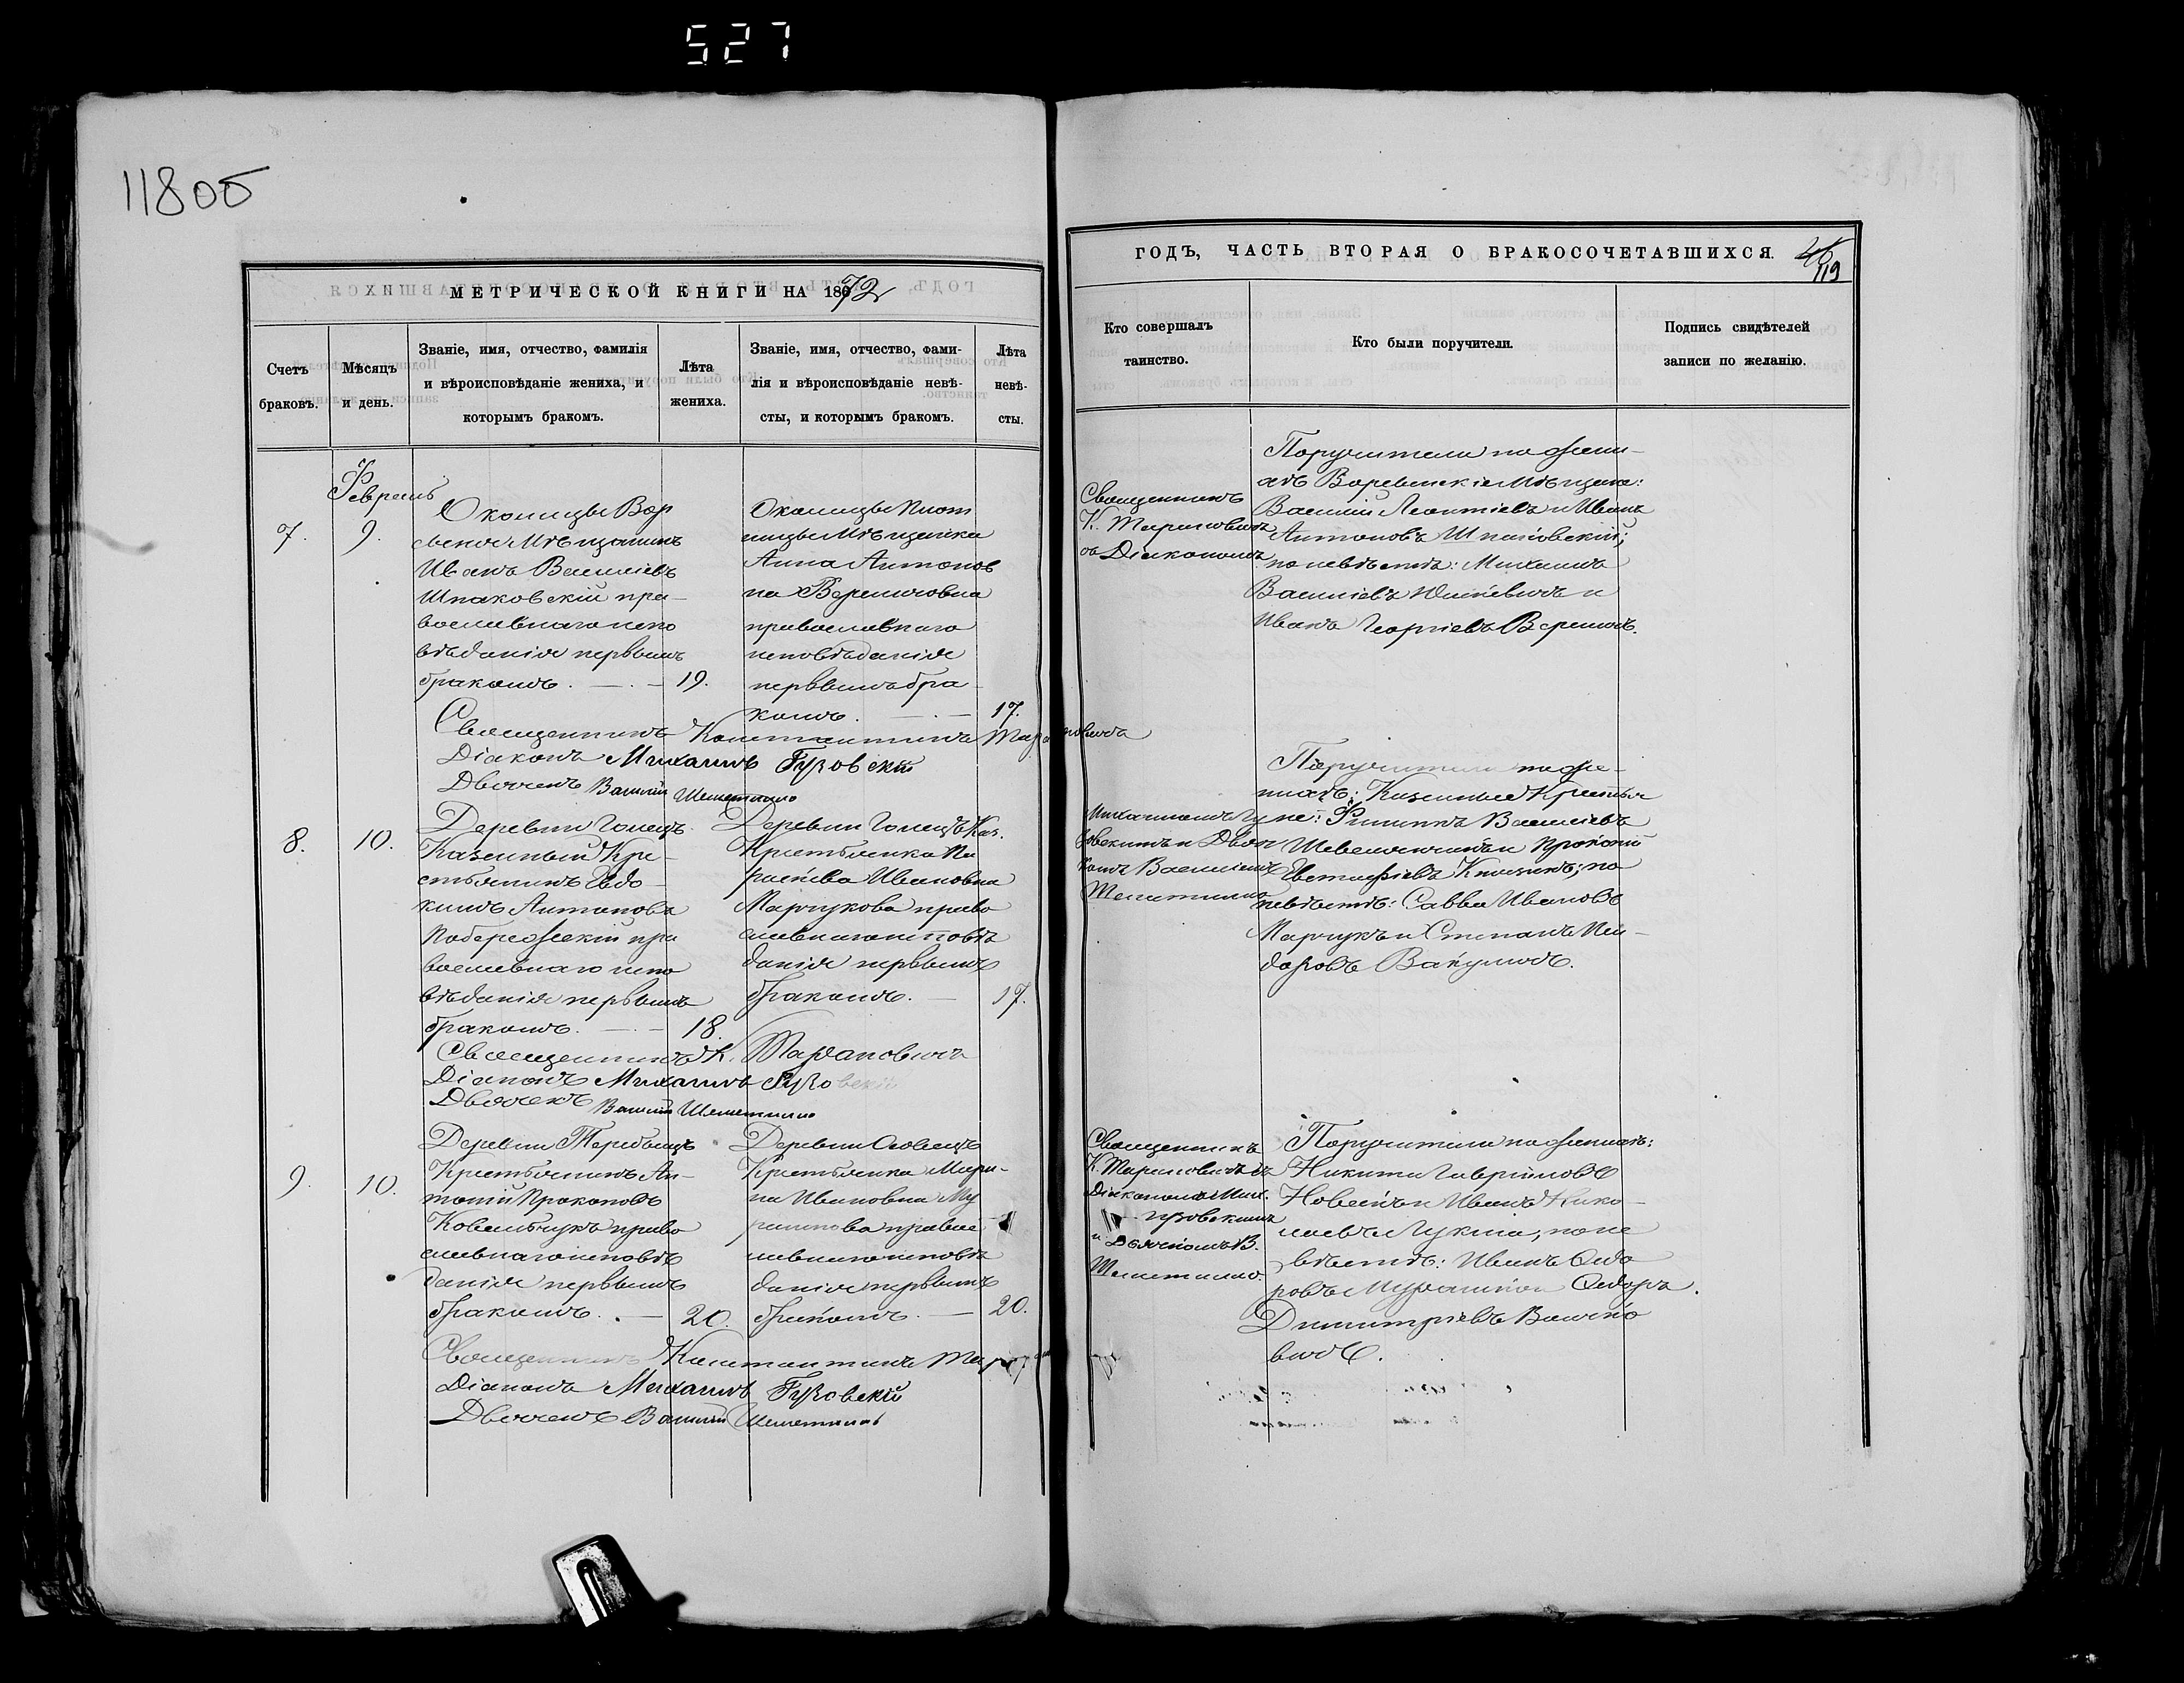 527
11805
МЕТРИЧЕСКОЙ КНИГИ НА 1872
Счетъ
браковъ.
Мѣсяцъ
и день.
Званіе, имя, отчество, фамилія
и вѣроисповѣданіе жениха, и
которымъ бракомъ.
Лѣта
жениха.
Званіе, имя, отчество, фами-
лія и вѣроисповѣданіе невѣ-
сты, и которымъ бракомъ.
Лѣта
невѣ-
сты.
Февраль
7.
9.
Околицы Вор
мѣщанинъ
Иванъ Васильевъ
Шпаковскій пра-
вославнаго испо
вѣданія первымъ
бракомъ. — 19.
Околицы
мѣщанка
Анна Антонов
на Веремчовна
православнаго
исповѣданія
первымъ бра-
комъ. — 17.
Священникъ Константинъ Тарановичъ
Діаконъ Михаилъ Гузовскій
Дьячекъ Василій Шеметилло
8.
10.
Деревни Голецъ
Казенный Кре-
стьянинъ Евдо-
кимъ Антоновъ
Побережскій пра
вославнаго испо
вѣданія первымъ
бракомъ. — 18.
Деревни Голецъ Каз.
Крестьянка Па
раскева Ивановна
Марчукова право
славнаго исповѣ
данія первымъ
бракомъ. — 17.
Священникъ К. Тарановичъ
Діаконъ Михаилъ Гузовскій
Дьячекъ Василій Шеметилло
9.
10.
Деревни Теребежъ
Крестьянинъ Ан-
тоній Прокоповъ
Ковальчукъ право
славнаго исповѣ
данія первымъ
бракомъ. — 20.
Деревни Осовецъ
Крестьянка Мари-
на Ивановна Му
рашкова правос
лавнаго исповѣ
данія первымъ
бракомъ. — 20.
Священникъ Константинъ
Діаконъ Михаилъ Гузовскій
Дьячекъ Василій Шеметилло
ГОДЪ, ЧАСТЬ ВТОРАЯ О БРАКОСОЧЕТАВШИХСЯ.
119
Кто совершалъ
таинство.
Кто были поручители.
Подпись свидѣтелей
записи по желанію.
Священникъ
К. Тарановичъ
съ Діакономъ
Поручители по жени-
хѣ мѣщане:
Василій Леонтіевъ и Иванъ
Антоновъ Шпаковскій;
по невѣстѣ: Михаилъ
Василіевъ и
Иванъ Георгіевъ Веремчь.
Михаиломъ Гу
зовскимъ и Дьяч
комъ Василіемъ
Шеметилло
Поручители по же-
нихѣ: Казенные Крестья
не: Филиппъ Василіевъ
и Прокопій
Евстафіевъ по
невѣстѣ: Савва Ивановъ
Марчукъ и Степанъ Иси-
доровъ Вакуличъ.
Священникъ
К. Тарановичъ съ
Діакономъ Мих.
Гузовскимъ
и Дьячкомъ В.
Шеметилло.
Поручители по женихѣ:
Никита Гавриловъ
и Иванъ Нико-
лаевъ Лукша, по не
вѣстѣ: Иванъ Сидо
ровъ Мурашко и Сидоръ
Димитріевъ
вичъ.